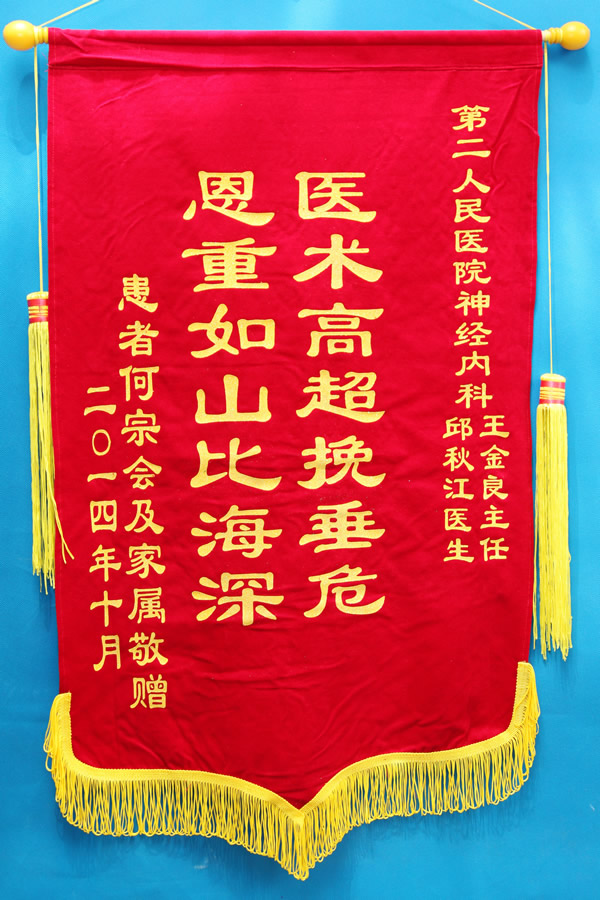 第二人民医院神经内科
王金良主任
邱秋江医生
医术高超挽垂危
恩重如山比海深
患者何宗会及家属敬赠
二〇一四年十月